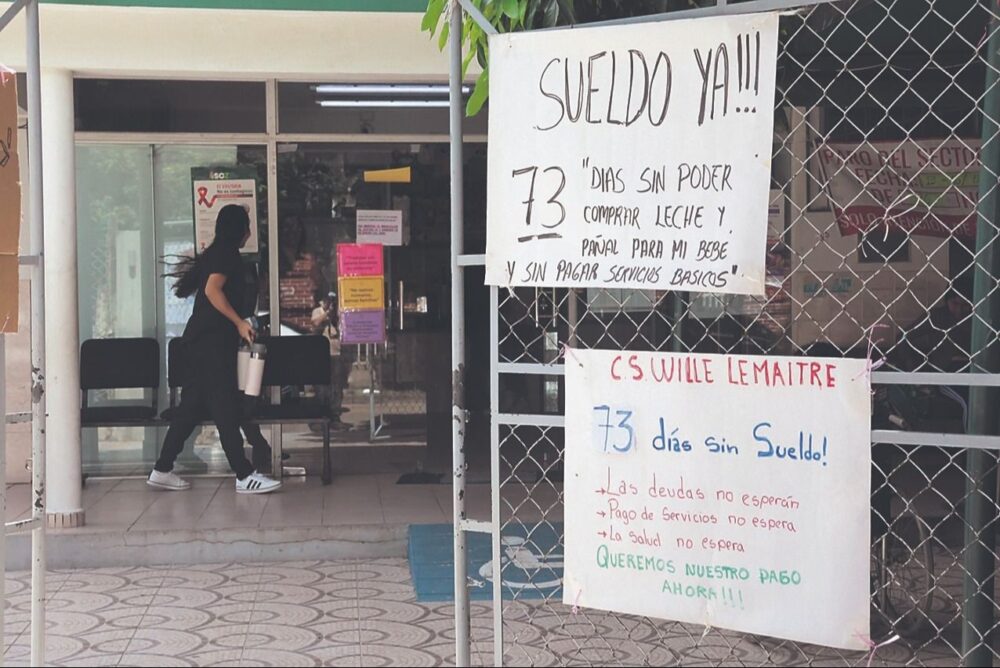 SUELDO YA!!!
73
"DIAS SIN PODER
COMPRAR LECHE Y
PAÑAL PARA MI BEBE
Y SIN PAGAR SERVICIOS BASICOS"
C.S. WILLE LEMAITRE
73 días sin Sueldo!
→Las deudas no esperán
→Pago de Servicios no espera
→La salud no espera
QUEREMOS NUESTRO PAGO
AHORA!!!
PARO DEL SECTO